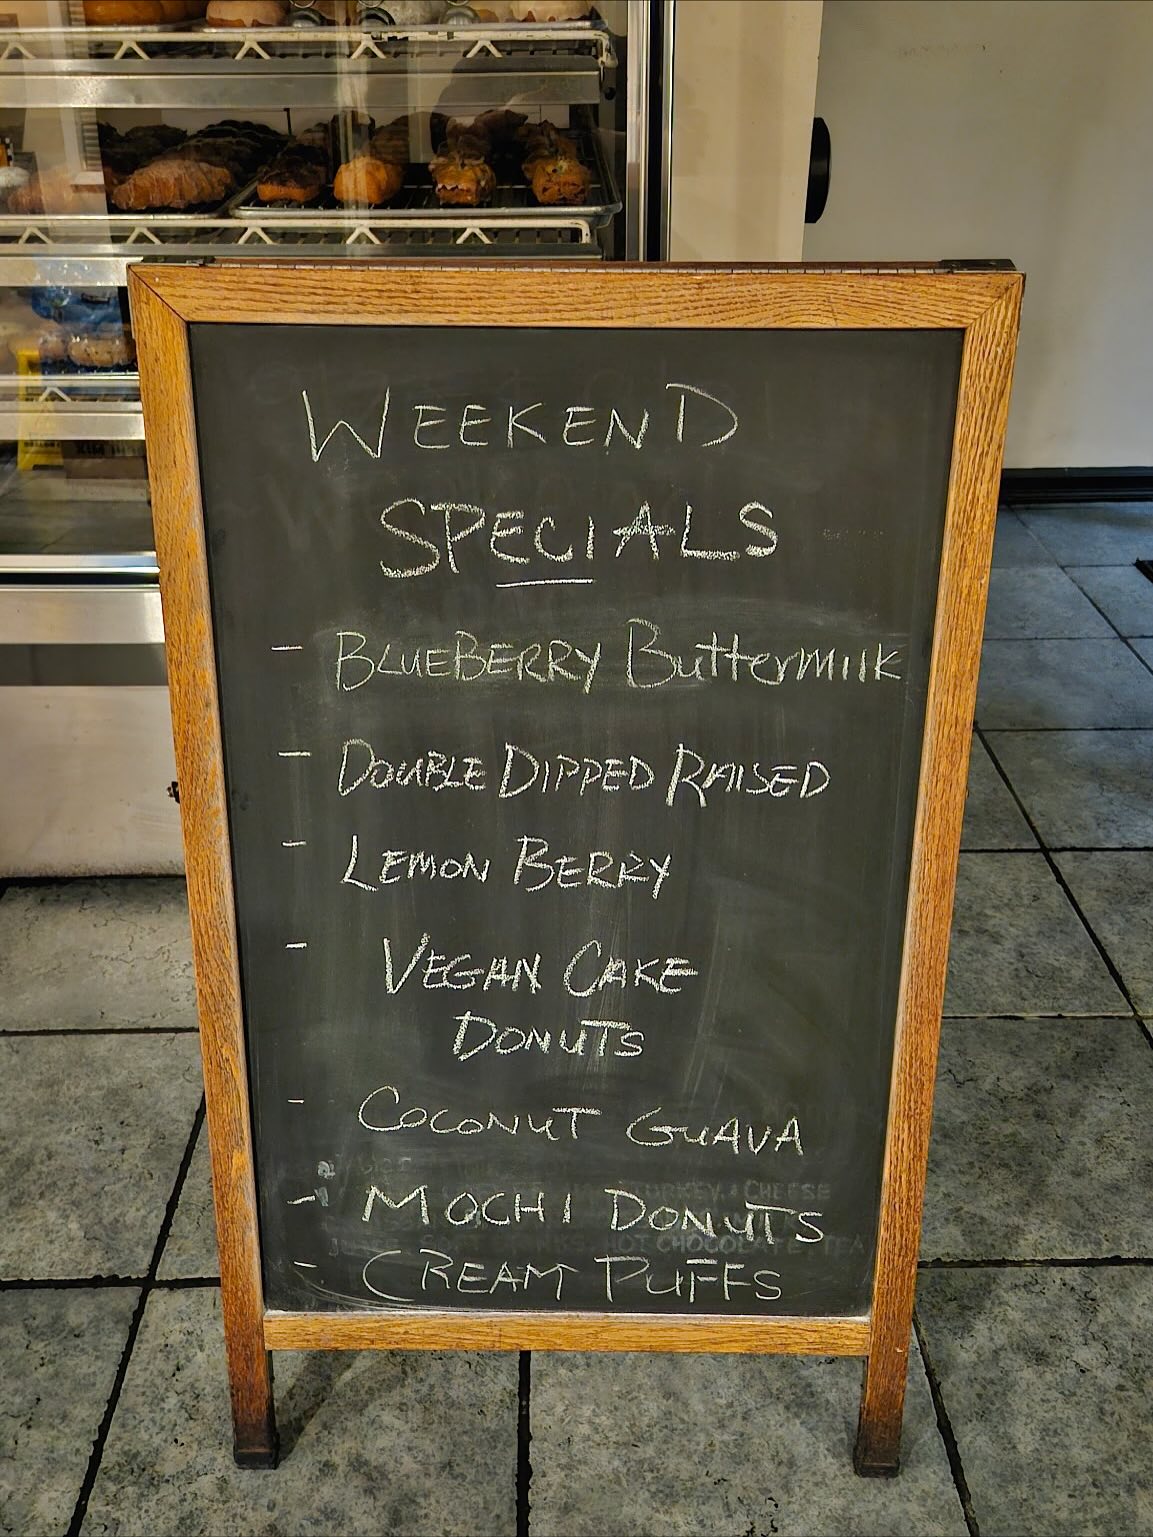 WEEKEND
SPECIALS
- BLUEBERRY Buttermilk
- DOUBLE DIPPED RAISED
- LEMON BERRY
- VEGAN CAKE
DONUTS
- COCONUT GUAVA
TURKEY & CHEESE
- MOCHI DONUTS
HOT CHOCOLATE TEA
- CREAM PUFFS